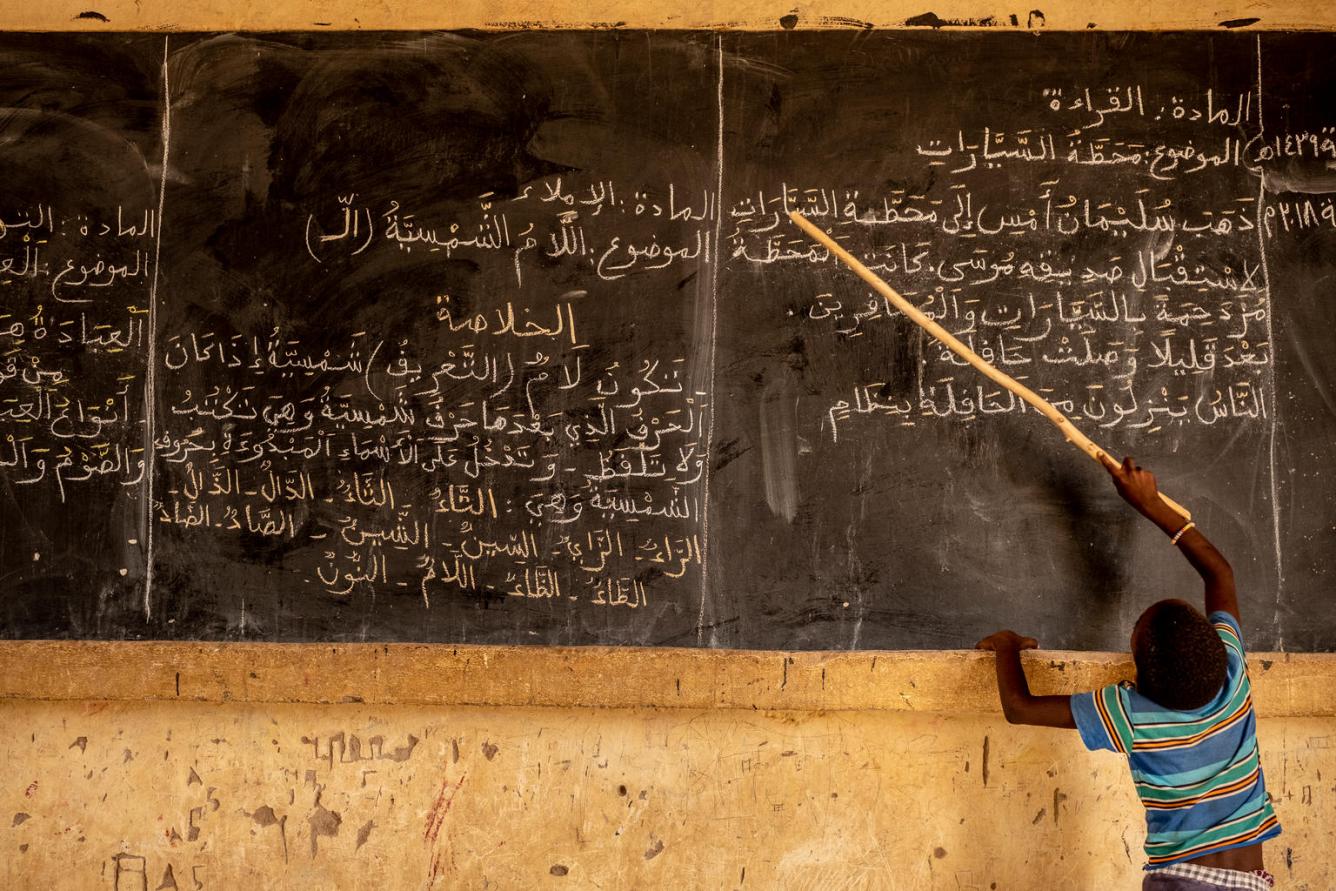 المادة: القراءة
الموضوع: مَحَطَّةُ السَّيَّارَاتِ
ذَهَبَ سُلَيْمَانُ أَمْسِ إِلَى مَحَطَّةِ السَّيَّارَاتِ
لِاسْتِقْبَالِ صَدِيقِهِ مُوسَى. كَانَتِ الْمَحَطَّةُ
مُزْدَحِمَةً بِالسَّيَّارَاتِ وَالْمُسَافِرِينَ.
بَعْدَ قَلِيلًا وَصَلَتْ حَافِلَةٌ
النَّاسُ يَنْزِلُونَ مِنَ الْحَافِلَةِ بِنِظَامٍ
١٤٣٩هـ
٢٠١٨م
المادة: الإملاء
الموضوع: اللَّامُ الشَّمْسِيَّةُ (الـّ)
الخلاصة
تَكُونُ لَامُ (التَّعْرِيفُ) شَمْسِيَّةُ إِذَا كَانَ
الْحَرْفُ الَّذِي بَعْدَهَا حَرْفُ شَمْسِيَةُ وَهِيَ تَكْتُبُ
وَلَا تَلْفَظِ - وَ تَدْخُلُ عَلَى الْأَسْمَاءِ الْمَبْدُوءَةِ بِحُرُوفِ
الشَمْسِيَةُ وَهِيَ: التَّاءُ - الثَّاءُ - الدَّالُ - الذَّالُ -
الرَّاءُ - الزَّايُ - السِّينُ - الشِّينُ - الصَّادُ - الضَّادُ
الطَّاءُ - الظَّاءُ - اللَّامُ - النُّونُ
المادة:
الموضوع:
الْعِبَادَةُ
أَنْوَاعُ
وَالصَّوْمُ